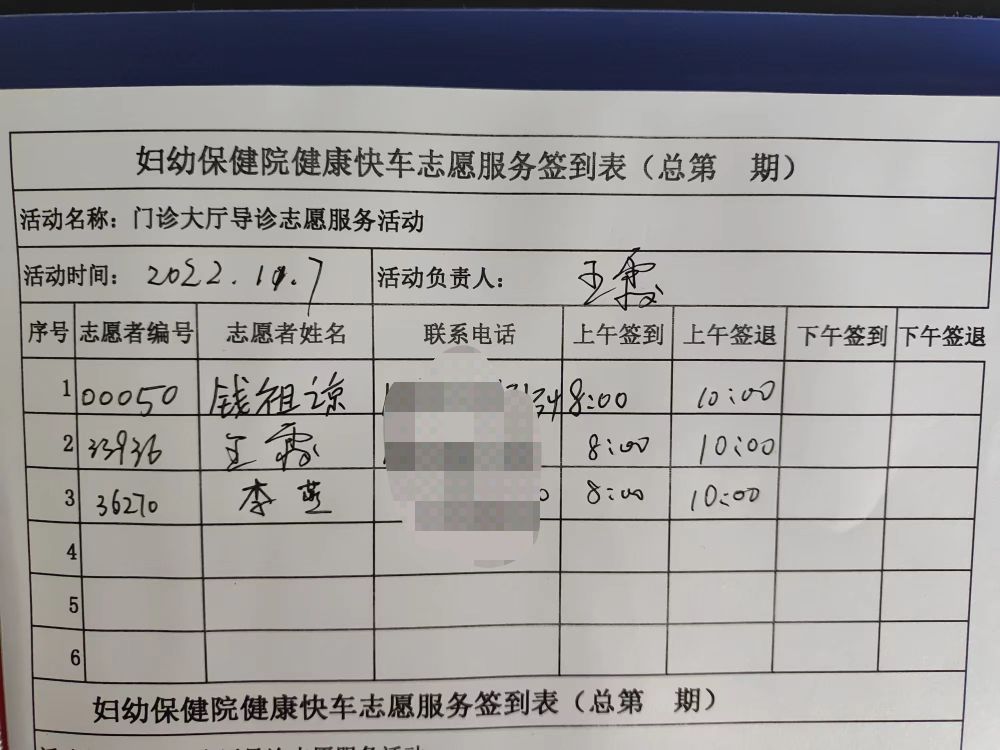 妇幼保健院健康快车志愿服务签到表（总第 期）
活动名称：门诊大厅导诊志愿服务活动
活动时间： 2022.10.7 活动负责人： 王霞
序号 志愿者编号 志愿者姓名 联系电话 上午签到 上午签退 下午签到 下午签退
1 00050 钱祖谅 8:00 10:00
2 33936 王霞 8:00 10:00
3 36270 李芝 8:00 10:00
4
5
6
妇幼保健院健康快车志愿服务签到表（总第 期）